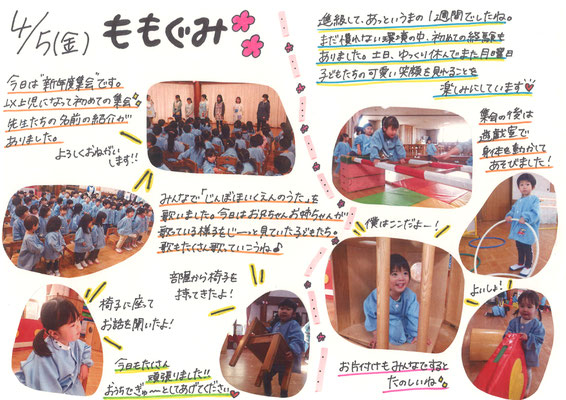 4/5(金) ももぐみ
今日は"新年度集会"です。
以上児になって初めての集会
先生たちの名前の紹介が
ありました。
よろしくおねがい
します!!
みんなで「じんぽほいくえんのうた」を
歌いました。今日はお兄ちゃんお姉ちゃんが
歌っている様子をじーっと見ていた子どもたち。
歌もたくさん歌っていこうね♪
椅子に座って
お話を聞いたよ!
部屋から椅子を
持ってきたよ!
今日もたくさん
頑張りました!!
おうちでぎゅ〜〜としてあげてください
進級して、あっというまの1週間でしたね。
まだ慣れない環境の中、初めての経験も
ありました。土日、ゆっくり休んでまた月曜日
子どもたちの可愛い笑顔を見れることを
楽しみにしています
集会の後は
遊戯室で
身体を動かして
あそびました!
僕はここだよー!
よいしょ!
お片付けもみんなですると
たのしいね